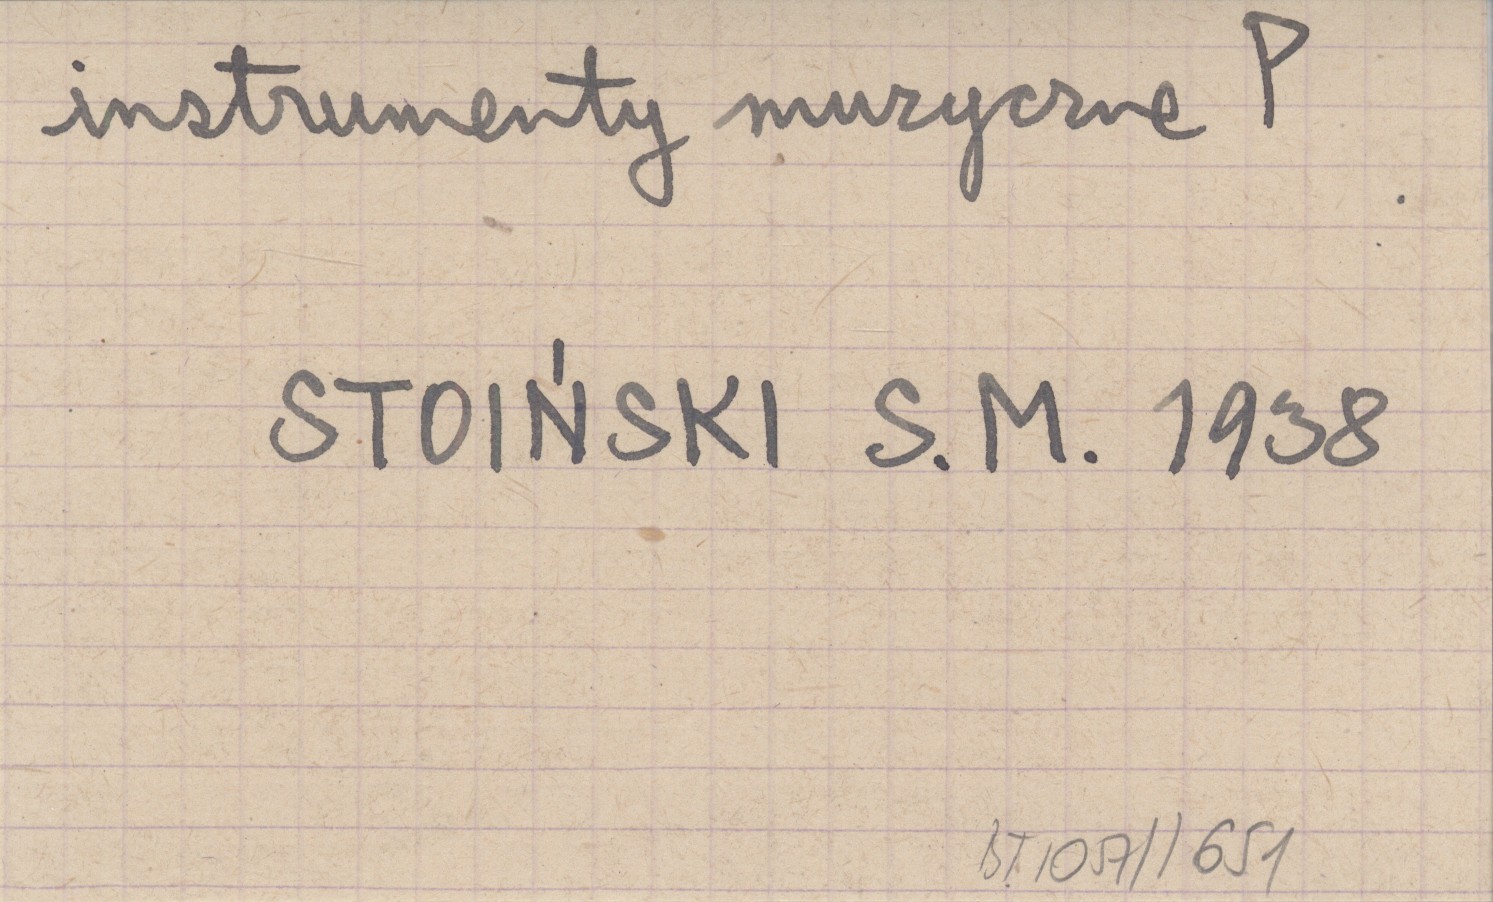 instrumenty muzyczne P
STOIŃSKI S.M. 1938
BT.1057//651